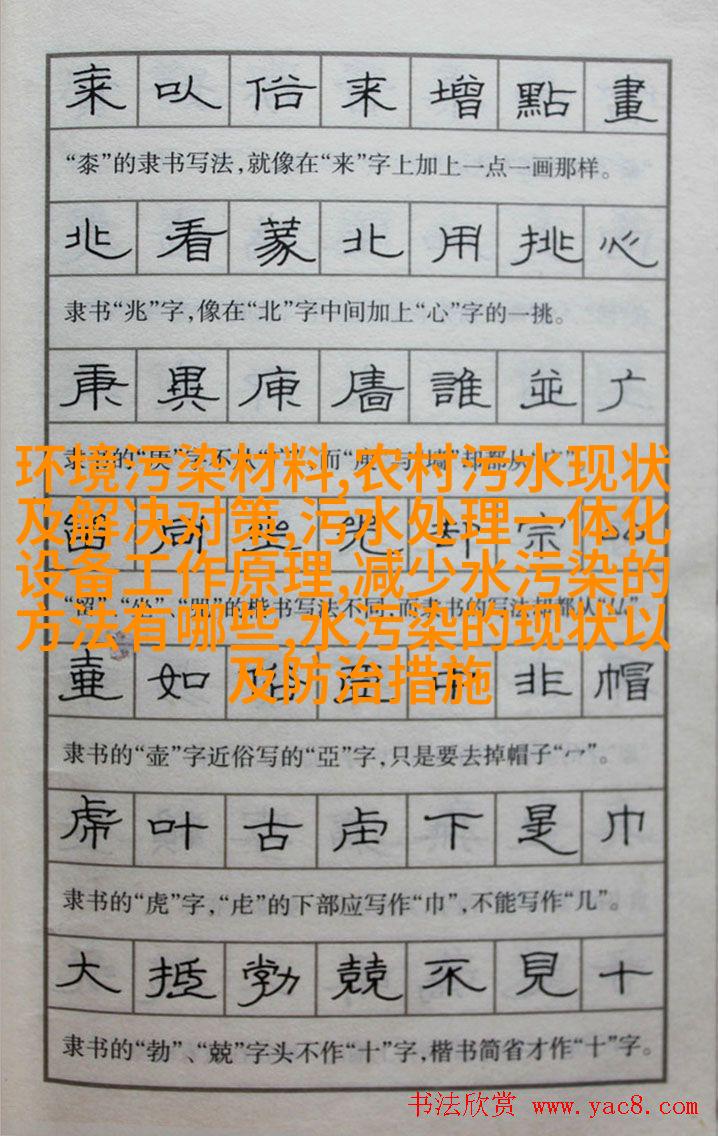 来 以 俗 来 增 點 畫
“桼”的隶书写法,就像在“来”字上加上一点一画那样。
兆 看 篆 北 用 挑 心
隶书“兆”字,像在“北”字中间加上“心”字的一挑。
庚 異 庙 廧 誰 並 广
环境污染材料,农村污水现状
及解决对策,污水处理一体化
设备工作原理,减少水污染的
方法有哪些,水污染的现状以
及防治措施
的楷书写法不同,而隶书的写法却都从
壺 如 俗 亞 中 非 帽
隶书的“壶”字近俗写的“亞”字,只是要去掉帽子“宀”。
虎 叶 古 虍 下 是 巾
隶书的“虎”字,“虍”的下部应写作“巾”,不能写作“几”。
大 抵 勃 兢 不 見 十
隶书的“勃”、“兢”字头不作“十”字,楷书简省才作“十”字。
书法欣赏 www.yac8.com